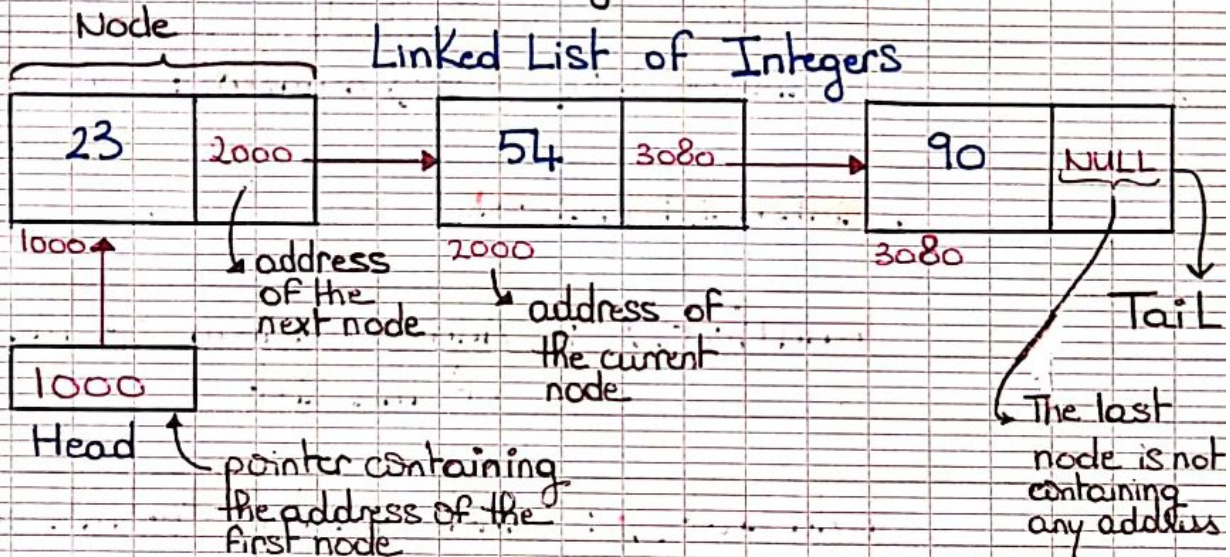 Node
Linked List of Integers
23
2000
54
3080
90
NULL
1000
2000
3080
address
of the
next node
address of
the current
node
Tail
1000
Head
pointer containing
the address of the
first node
The last
node is not
containing
any address